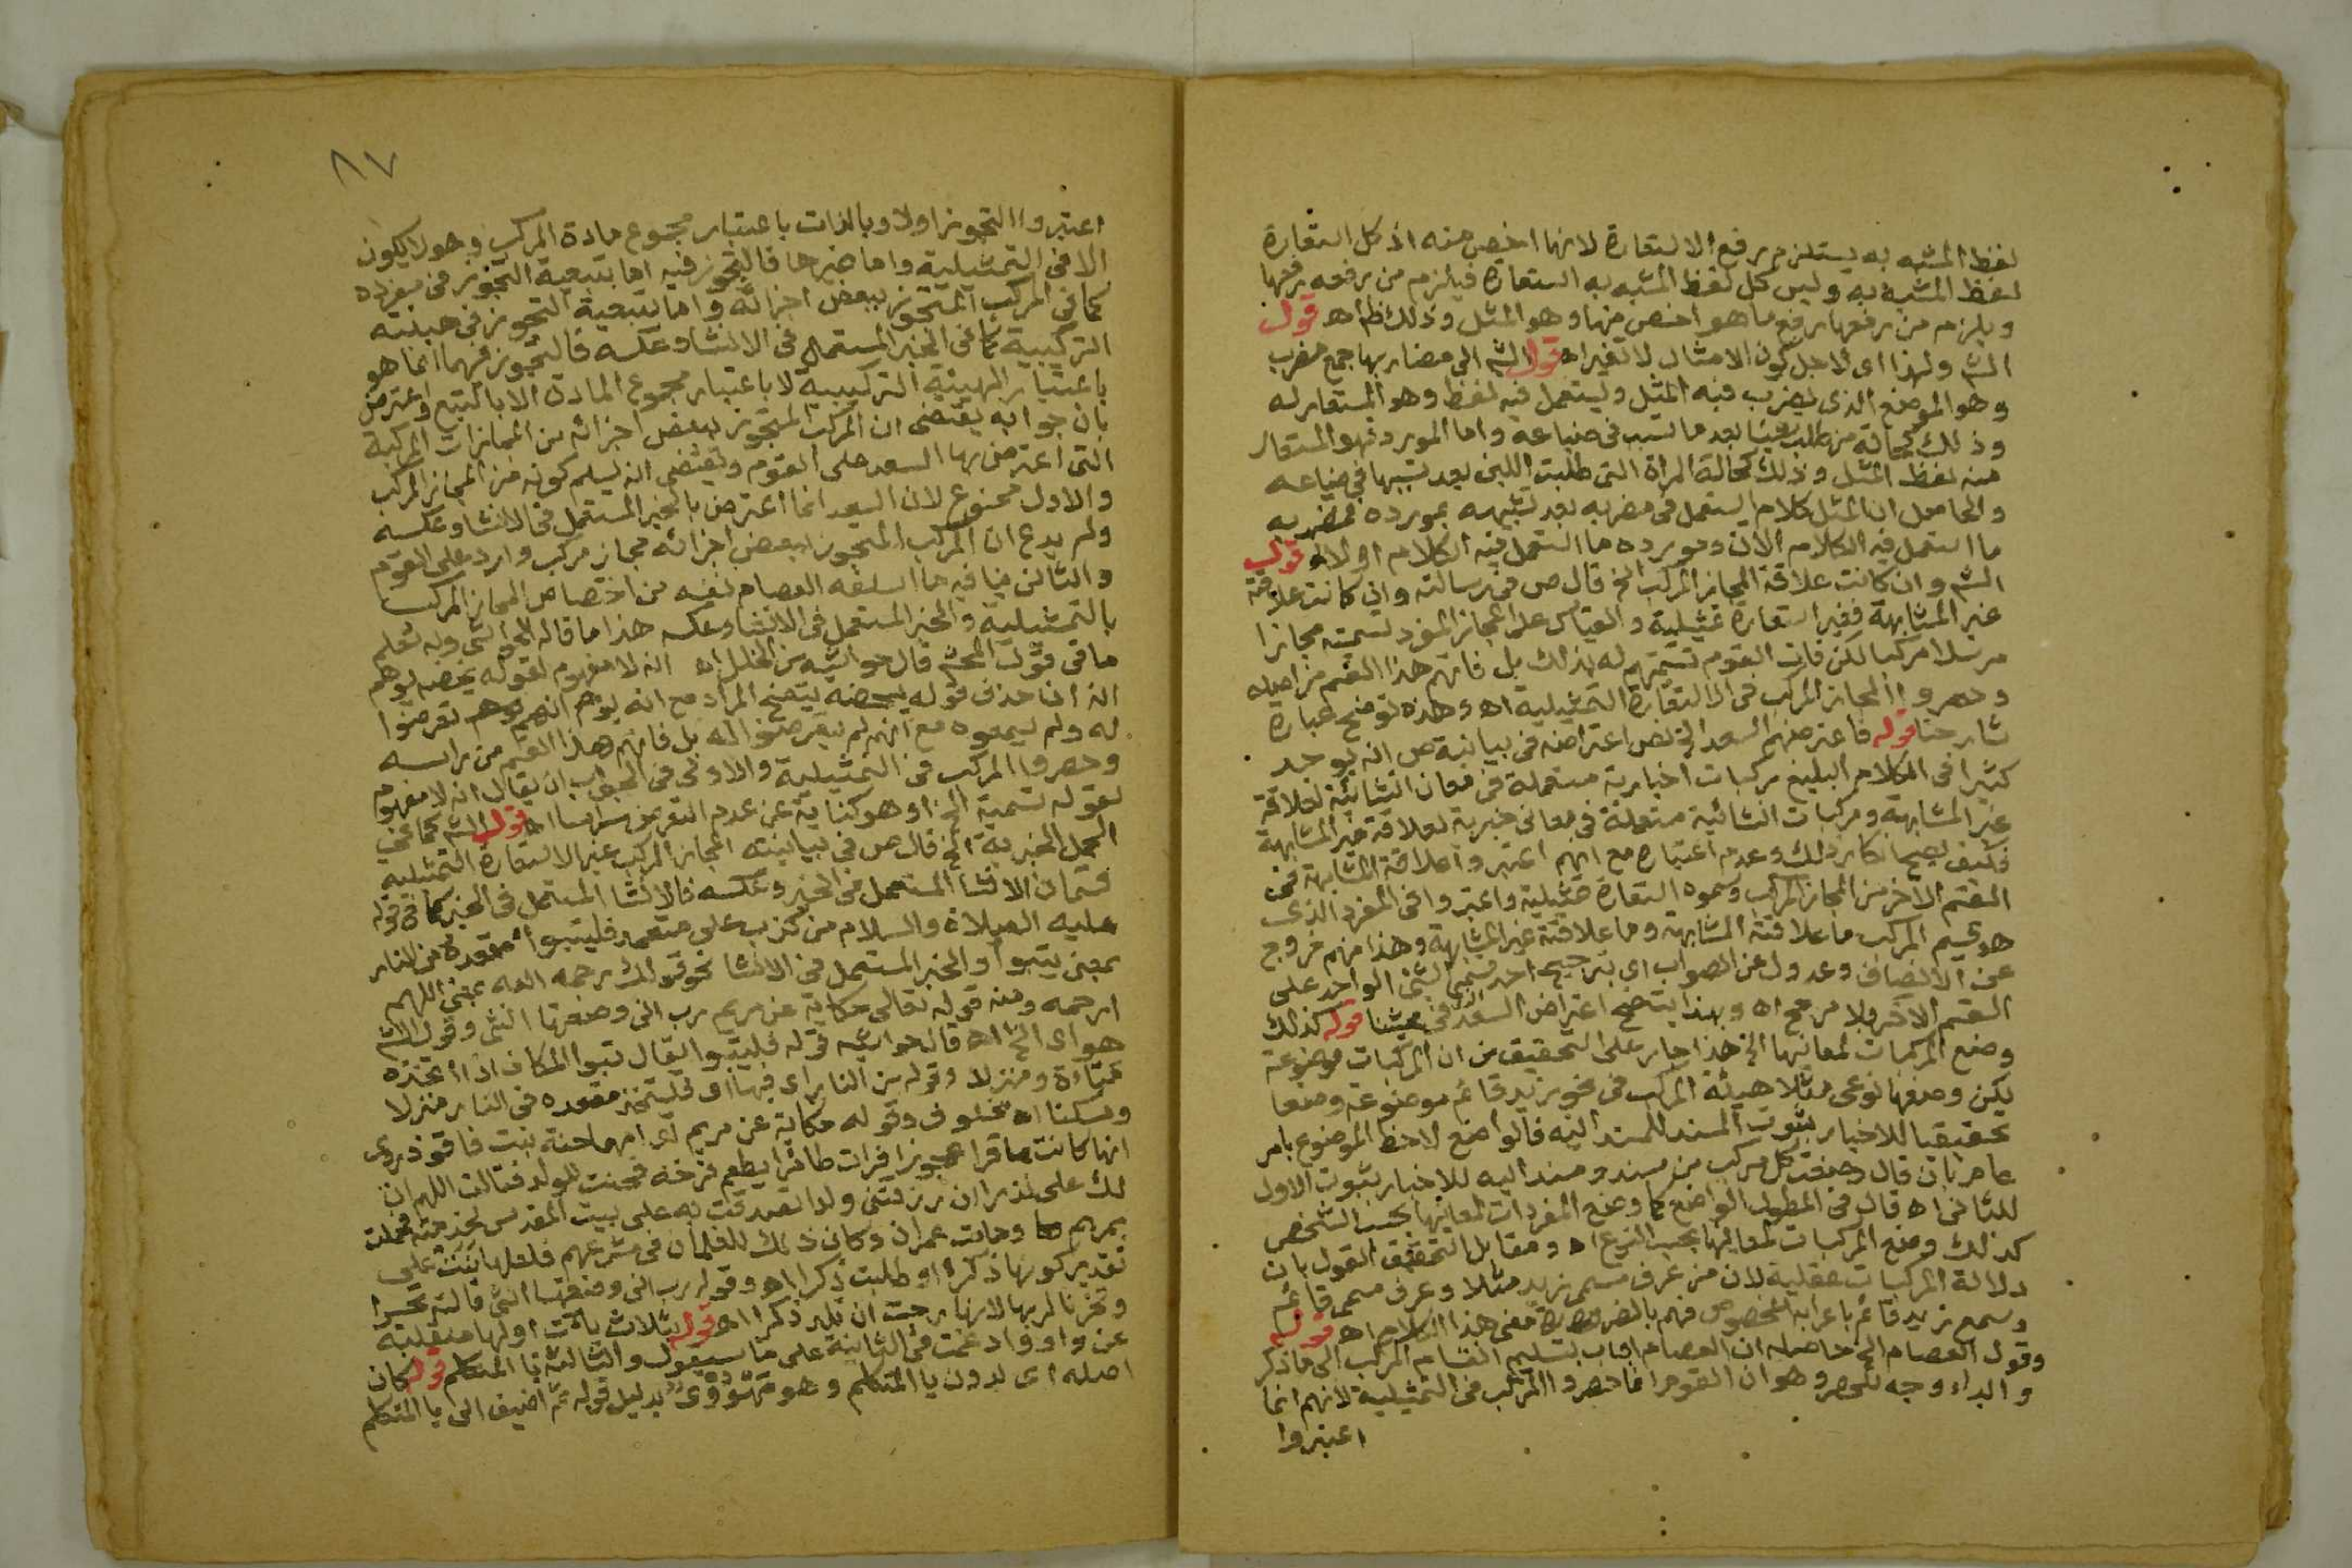 لفظ المشبه به يستلزم رفع الاستعارة لانها اخص منه اذ كل استعارة
لفظ المشبه به وليس كل لفظ المشبه به استعارة فيلزم من رفعه رفعها
ويلزم من رفعها رفع ما هو اخص منها وهو المثل وذلك ظ اه قول
الش ولهذا اى لاجل كون الامثال لا تغير اه قول الش الى مضاربها جمع مضرب
وهو الموضع الذى يضرب فيه المثل ويستعمل فيه لفظ وهو المستعار له
وذلك كحالة من طلب شيئا بعد ما تسبب فى ضياعه واما المورد فهو المستعار
منه لفظ المثل وذلك كحالة المراة التى طلبت اللبن بعد تسببها فى ضياعه
والحاصل ان المثل كلام استعمل فى مضربه بعد تشبيهه بمورده فمضربه
ما استعمل فيه الكلام الان ومورده ما استعمل فيه الكلام اولا اه قول
الش وان كانت علاقة المجاز المركب الخ قال ص فى رسالته وان كانت علاقته
غير المشابهة فغير استعارة تمثيلية والقياس على المجاز المفرد تسميته مجازا
مرسلا مركبا لكن فات القوم تسميتهم له بذلك بل فاتهم هذا القسم من اصله
وحصروا المجاز المركب فى الاستعارة التمثيلية اه وهذه توضح عبارة
شارحنا قوله فاعترضهم السعد الخ نص اعتراضه فى بيانية ص انه يوجد
كثيرا فى الكلام البليغ مركبات اخبارية مستعملة فى معان انشائية لعلاقة
غير المشابهة ومركبات انشائية مستعملة فى معانى خبرية لعلاقة غير المشابهة
فكيف يصح انكار ذلك وعدم اعتباره مع انهم اعتبروا علاقة المشابهة فى
القسم الآخر من المجاز المركب وسموه استعارة تمثيلية واعتبروا فى المفرد الذى
هو قسيم المركب ما علاقته المشابهة وما علاقته غير المشابهة وهذا منهم خروج
عن الانصاف وعدول عن الصواب اى بترجيح احد قسمى الشئ الواحد على
القسم الآخر بلا مرجح اه وبهذا يتضح اعتراض السعد فى قوله كذلك
وضع المركبات لمعانيها الخ هذا جار على التحقيق من ان المركبات موضوعة
لكن وضعها نوعى مثلا هيئة المركب فى نحو زيد قائم موضوعة وضعا
تحقيقيا للاخبار بثبوت المسند للمسند اليه فالواضع لاحظ الموضوع بامر
عام بان قال وضعت كل مركب من مسند ومسند اليه للاخبار بثبوت الاول
للثانى اه قال فى المطول الواضع كما وضع المفردات لمعانيها بحسب الشخص
كذلك وضع المركبات لمعانيها بحسب النوع اه ومقابل التحقيق القول بان
دلالة المركبات عقلية لان من عرف مسمى زيد مثلا وعرف مسمى قائم
وسمع زيد قائم باعرابه المخصوص فهم بالضرورة معنى هذا الكلام اه قوله
وقول العصام الخ حاصله ان العصام اجاب بتسليم انقسام المركب الى ما ذكر
وابداء وجه للحصر وهو ان القوم انما حصروا المركب فى التمثيلية لانهم انما
اعتبروا
٨٧
اعتبروا التجوز اولا وبالذات باعتبار مجموع مادة المركب وهو لا يكون
الا فى التمثيلية واما غيرها فالتجوز فيه اما بتبعية التجوز فى مفرده
كما فى المركب المتجوز ببعض اجزائه واما بتبعية التجوز فى هيئته
التركيبية كما فى الخبر المستعمل فى الانشا وعكسه فالتجوز فيهما انما هو
باعتبار الهيئة التركيبية لا باعتبار مجموع المادة الا بالتبع واعترض
بان جوابه يقتضى ان المركب المتجوز ببعض اجزائه من المجازات المركبة
التى اعترض بها السعد على القوم ويقتضى انه يسلم كونه من المجاز المركب
والاول ممنوع لان السعد انما اعترض بالخبر المستعمل فى الانشا وعكسه
ولم يدع ان المركب المتجوز ببعض اجزائه مجاز مركب وارد على القوم
والثانى ينافيه ما اسلفه العصام نفسه من اختصاص المجاز المركب
بالتمثيلية والخبر المستعمل فى الانشا وعكسه هذا ما قاله الحواشى وبه تعلم
ما فى قول المحشى قال حواشيه من الخلل اه انه لا مفهوم لقوله يخصه يوهم
انه ان حذف قوله يتضح المراد مع انه يوهم انهم تعرضوا
له ولم يسموه مع انهم لم يتعرضوا له بل فاتهم هذا القسم من راسه
وحصروا المركب فى التمثيلية والاولى فى الجواب ان يقال انه لا مفهوم
لقوله تسمية الخ او هو كناية عن عدم التعرض له راسا اه قول الش كما فى
الجمل الخبرية الخ قال ص فى بيانيته المجاز المركب غير الاستعارة التمثيلية
قسمان الانشا المستعمل فى الخبر وعكسه فالانشا المستعمل فى الخبر كما فى قوله
عليه الصلاة والسلام من كذب على متعمد فليتبوأ مقعده من النار
بمعنى يتبوأ والخبر المستعمل فى الانشا نحو قولك رحمه الله بمعنى اللهم
ارحمه ومنه قوله تعالى حكاية عن مريم رب انى وضعتها انثى وقول الش
هواى الخ اه قال حواشيه قوله فليتبوأ يقال تبوا المكان اذا اتخذه
مباءة ومنزلا وقوله من النار اى فيها اى فليتخذ مقعده فى النار منزلا
ومسكنا اه وقوله حكاية عن مريم اى امها حنة بنت فاقوذ روى
انها كانت عاقرا عجوزا فرات طائرا يطعم فرخه فحنت للولد فقالت اللهم ان
لك على نذرا ان رزقتنى ولدا تصدقت به على بيت المقدس لخدمته فحملت
بمريم وماتت عمران وكان ذلك للغلمان فى شرعهم فلعلها بنت على
تقدير كونها ذكرا او طلبت ذكرا اه وقوله رب انى وضعتها انثى قالته تحسرا
وتحزنا لربها لانها رجت ان تلد ذكرا اه قوله بثلاث ياآت اولها منقلبة
عن واو وادغمت فى الثانية على ما سيقول والثالثة يا المتكلم قوله كان
اصله اى بدون يا المتكلم وهو مهووى بدليل قوله ثم اضيف الى يا المتكلم